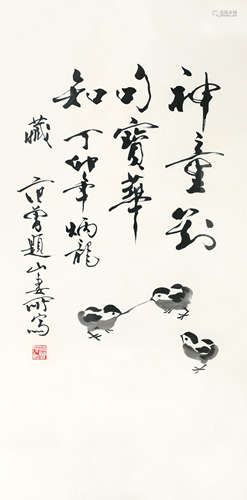 神童對
句寶華
知丁卯年炳龍
藏
范曾題山妻所寫